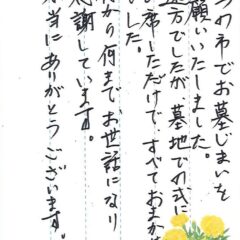 市でお墓じまいを
願いいたしました。
遠方でしたが墓地での式に
席しただけで、すべておまか
した。
から何までお世話になり
感謝しています。
当にありがとうございます。